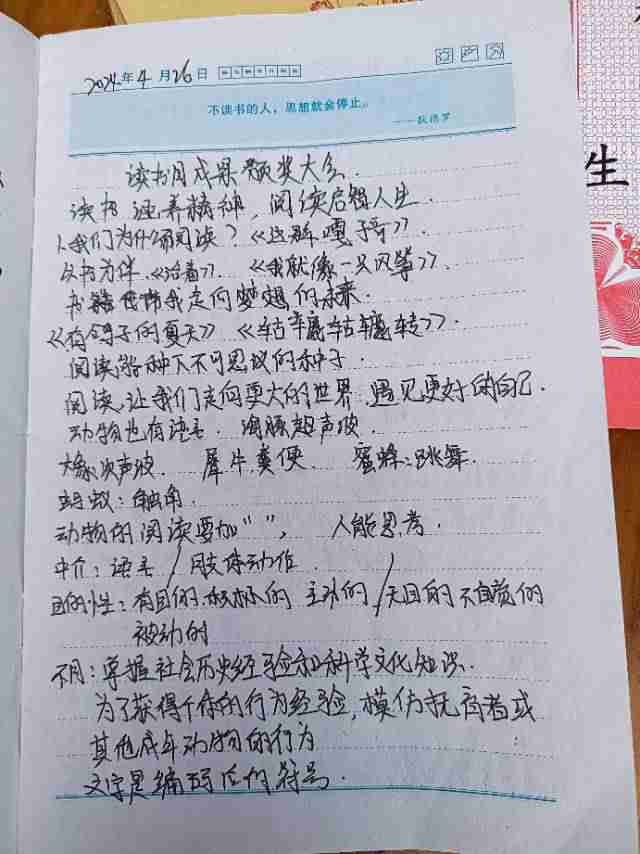 2024年4月26日
不读书的人，思想就会停止。
——狄德罗
读书月成果颁奖大会.
读书滋养精神，阅读启智人生
1、我们为什么需要阅读？《这就是嘎子哥》.
以书为伴.《活着》.《我就像一只风筝》.
书 我走向梦想的未来.
《有鸽子的夏天》《轱辘轱辘转》.
阅读,能种下不可思议的种子
阅读,让我们走向更大的世界,遇见更好的自己.
动物也有语言. 海豚超声波.
大象:次声波. 犀牛:粪便. 蜜蜂:跳舞.
蚂蚁:触角.
动物的阅读要加“ ”, 人能思考.
中介:语言/肢体动作
目的性:有目的.积极的 主动的/无目的 不自觉的
被动的
不同:掌握社会历史经验和科学文化知识.
为了获得个体的行为经验,模仿抚育者或
其他成年动物的行为
文字是编码后的符号.
生